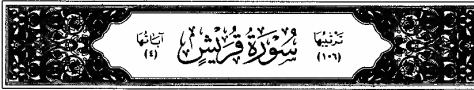 ترتيبها
(١٠٦)
سُورَةُ قُرَيْشٍ
آياتها
(٤)